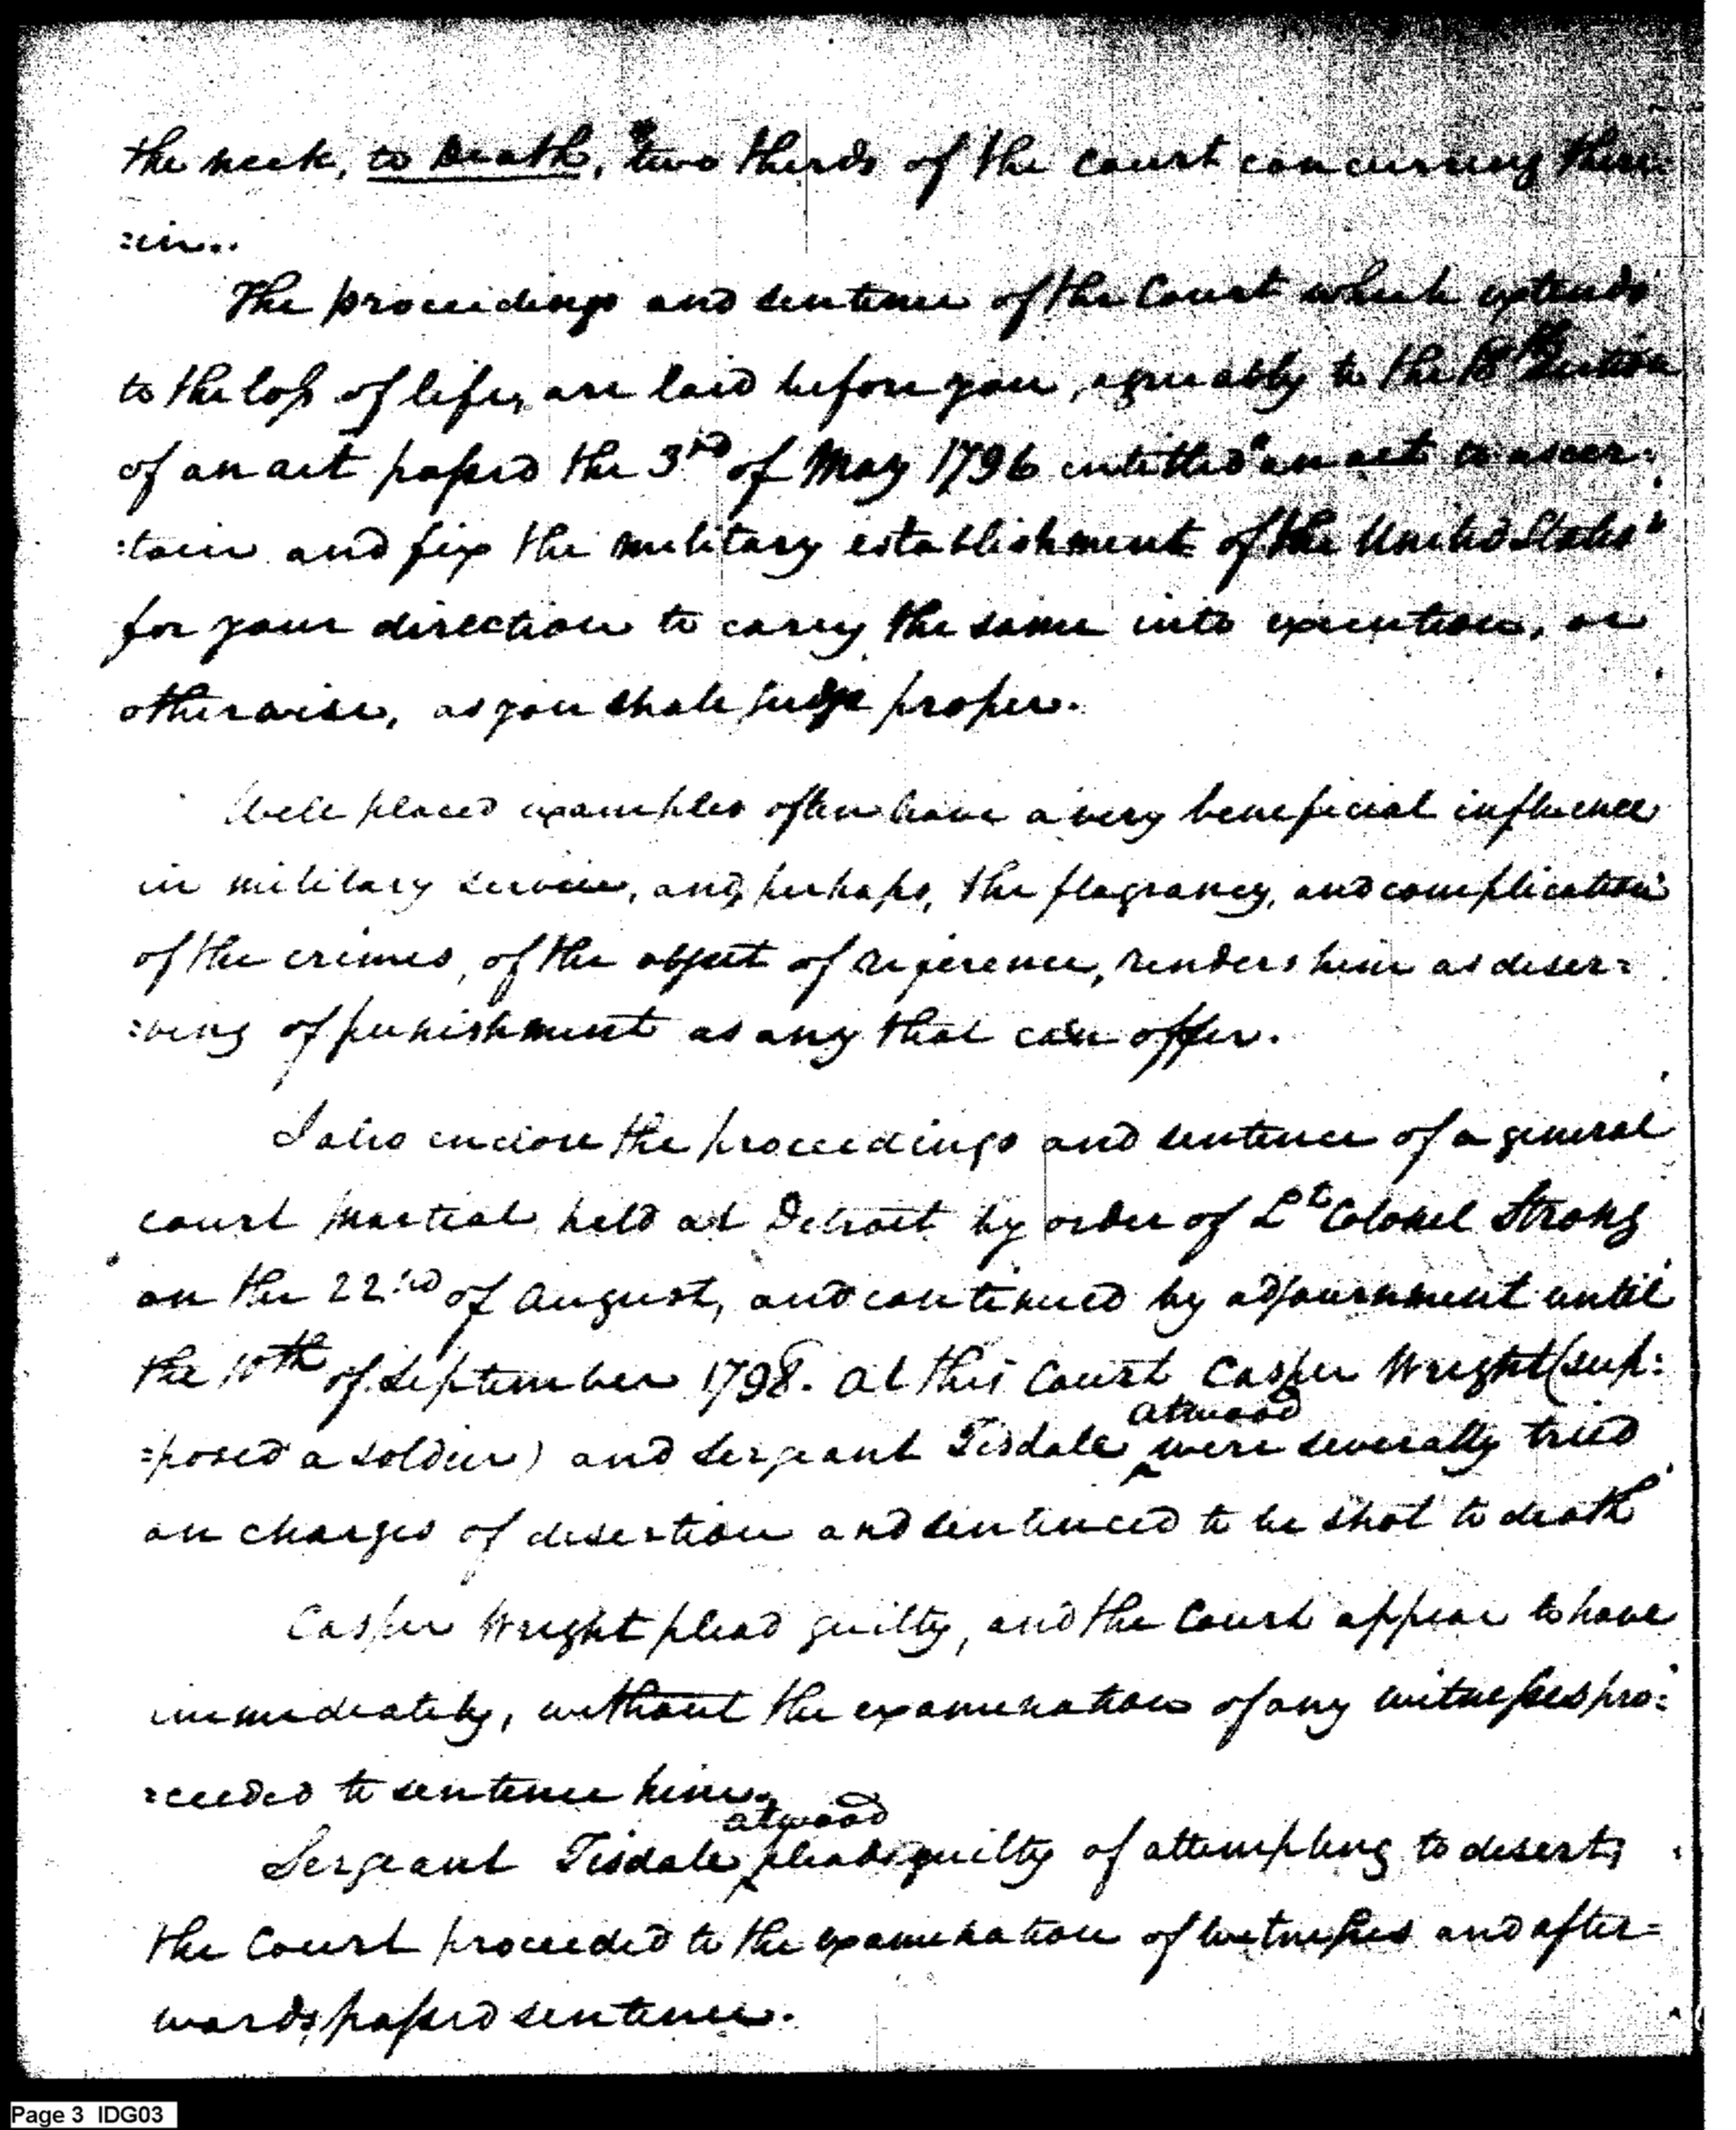 the neck, to Death, "two thirds of the court concurring there:
:in..
The proceedings and sentence of the Court which extends
to the loss of life, are laid before you, agreeably to the 18th Section
of an act passed the 3rd of May 1796 entitled "an act to ascer:
:tain and fix the military establishment of the United States"
for your direction to carry the same into execution, or
otherwise, as you shall judge proper.
Well placed examples often have a very beneficial influence
in military service, and, perhaps, the flagrancy, and complication
of the crimes, of the object of reference, renders him as deser=
:ving of punishment as any that can offer.
I also enclose the proceedings and sentence of a general
court martial held at Detroit by order of Lt Colonel Strong
on the 22nd of August, and continued by adjournment until
the 10th of September 1798. At this Court Casper Wright (sup:
:posed a soldier) and Sergeant Tisdale ^ atwood were severally tried
on charges of desertion and sentenced to be shot to death
Casper Wright plead guilty, and the Court appear to have
immediately, without the examination of any witnesses pro:
:ceeded to sentence him.
Sergeant Tisdale ^ atwood pleads guilty of attempting to desert,
the Court proceeded to the examination of witnesses and after=
wards, passed sentence.
Page 3 IDG03